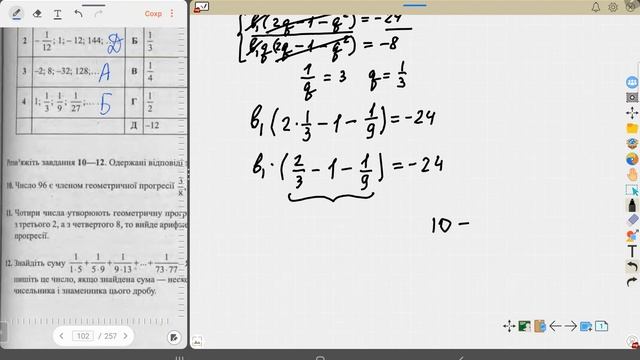 Сохр
2 -1/12; 1; -12; 144; ... Д Б 1/3
3 -2; 8; -32; 128;... А В 1/4
4 1; 1/3; 1/9; 1/27;... Б Г 1/2
Д -12
завдання 10—12. Одержані відповіді
10. Число 96 є членом геометричної прогресії 3/8
11. Чотири числа утворюють геометричну
з третього 2, а з четвертого 8, то вийде
прогресії.
12. Знайдіть суму 1/1·5 + 1/5·9 + 1/9·13 + ... + 1/73·77
пишіть це число, якщо знайдена сума —
чисельника і знаменника цього дробу.
102 / 257
b₁(2q-1-q²) = -24
b₁q(2q-1-q²) = -8
1/q = 3 q = 1/3
b₁(2·1/3 - 1 - 1/9) = -24
b₁·(2/3 - 1 - 1/9) = -24
10 -